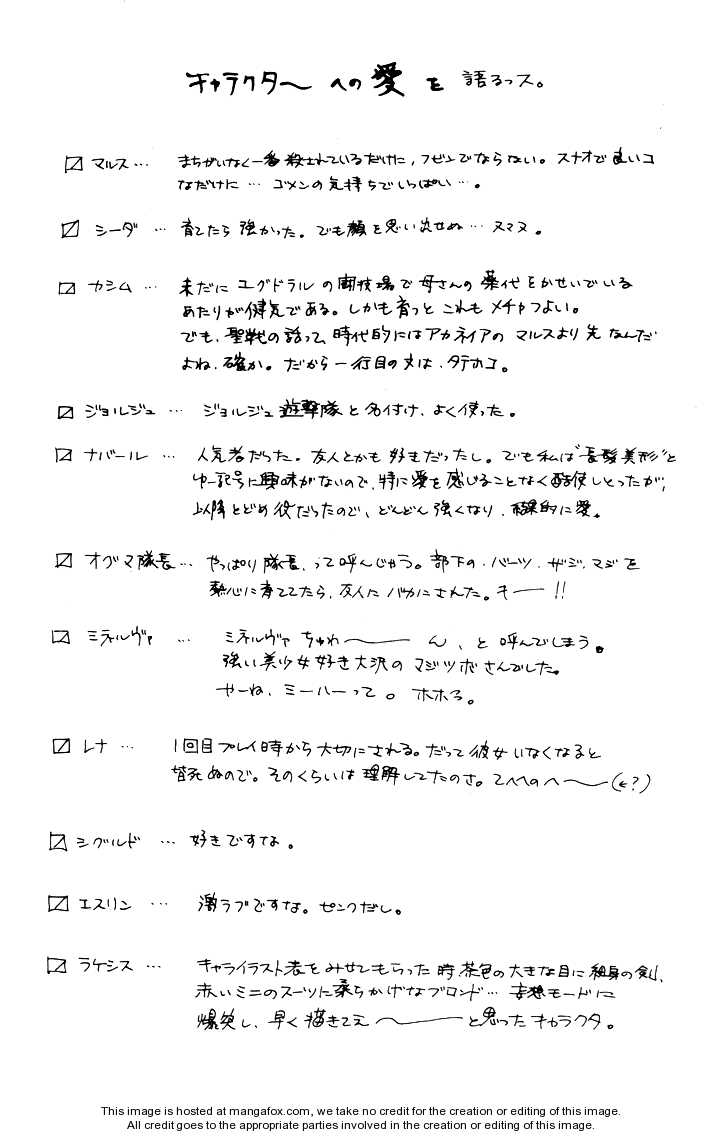 キャラクターへの愛を語るっス。
☑ マルス… まちがいなく一番殺されているだけに、フビンでならない。スナオで良いコ
なだけに… ゴメンの気持ちでいっぱい…。
☑ シーダ … 育てたら強かった。でも顔を思い出せぬ… ヌマヌ。
☑ カシム … 未だにユグドラルの闘技場で母さんの薬代をかせいでいる
あたりが健気である。しかも育つとこれもメチャつよい。
でも、聖戦の話って、時代的にはアカネイアのマルスより先なんだ
よね、確か。だから一行目の文は、タテホコ。
☑ ジョルジュ … ジョルジュ遊撃隊と名付け、よく使った。
☑ ナバール … 人気者だった。友人とかも好きだったし。でも私は"長髪美形"と
ゆー記号に興味がないので、特に愛を感じることなく酷使しとったが、
以降とどめ役だったので、どんどん強くなり、結果的に愛。
☑ オグマ隊長… やっぱり隊長、って呼んじゃう。部下の・バーツ・サジ・マジを
熱心に育ててたら、友人にバカにされた。キー!!
☑ ミネルヴァ … ミネルヴァちゅわ〜ん、と呼んでしまう。
強い美少女好き大沢のマジツボさんでした。
やーね、ミーハーって。ホホホ。
☑ レナ … 1回目プレイ時から大切にされる。だって彼女いなくなると
皆死ぬので。そのくらいは理解してたのさ。てへへのへ〜(←?)
☑ シグルド … 好きですな。
☑ エスリン … 激ラブですな。ピンクだし。
☑ ラケシス … キャライラスト表をみせてもらった時、茶色の大きな目に細身の剣、
赤いミニのスーツに柔らかげなブロンド… 妄想モードに
爆発し、早く描きてえ〜と思ったキャラクタ。
This image is hosted at mangafox.com, we take no credit for the creation or editing of this image.
All credit goes to the appropriate parties involved in the creation or editing of this image.